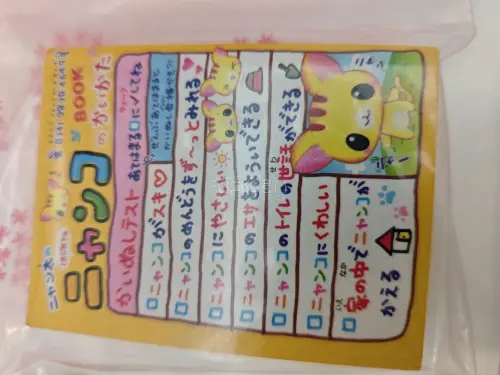 ニャンコ
の
かいかた
BOOK
かいぬしテスト
あてはまる□に✓してね
ニャンコがスキ♡
ニャンコのめんどうをず〜っとみれる
ニャンコにやさしい
ニャンコのエサをよういできる
ニャンコのトイレの世話ができる
ニャンコにくわしい
家の中でニャンコが
かえる